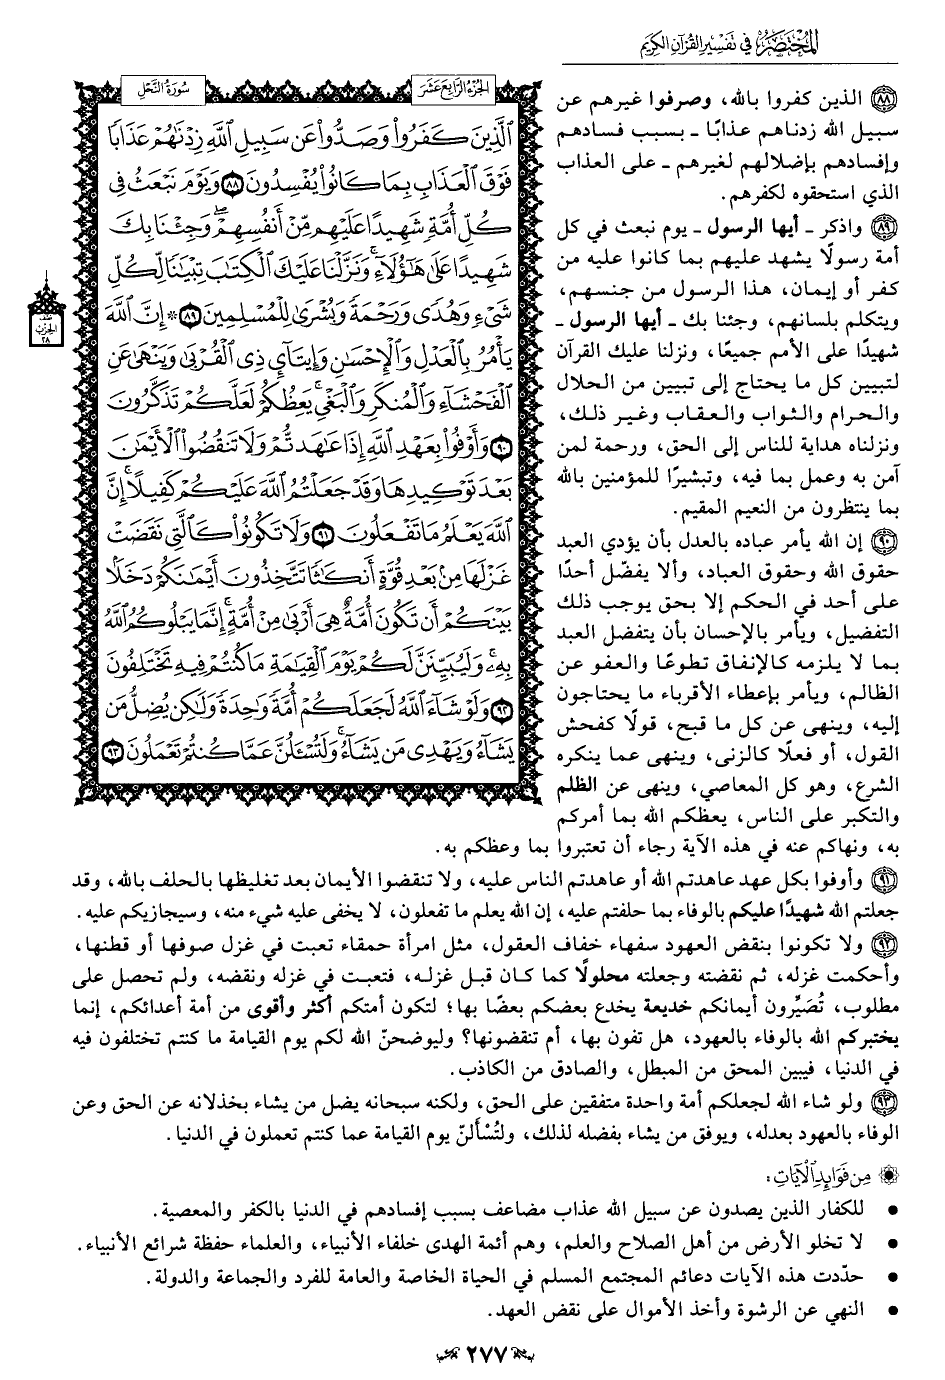 المختصر في تفسير القرآن الكريم
الجزء الرابع عشر
سورة النحل
ٱلَّذِينَ كَفَرُواْ وَصَدُّواْ عَن سَبِيلِ ٱللَّهِ زِدۡنَٰهُمۡ عَذَابٗا
فَوۡقَ ٱلۡعَذَابِ بِمَا كَانُواْ يُفۡسِدُونَ ٨٨ وَيَوۡمَ نَبۡعَثُ فِي
كُلِّ أُمَّةٖ شَهِيدًا عَلَيۡهِم مِّنۡ أَنفُسِهِمۡۖ وَجِئۡنَا بِكَ
شَهِيدًا عَلَىٰ هَٰٓؤُلَآءِۚ وَنَزَّلۡنَا عَلَيۡكَ ٱلۡكِتَٰبَ تِبۡيَٰنٗا لِّكُلِّ
شَيۡءٖ وَهُدٗى وَرَحۡمَةٗ وَبُشۡرَىٰ لِلۡمُسۡلِمِينَ ٨٩ ۞ إِنَّ ٱللَّهَ
يَأۡمُرُ بِٱلۡعَدۡلِ وَٱلۡإِحۡسَٰنِ وَإِيتَآيِٕ ذِي ٱلۡقُرۡبَىٰ وَيَنۡهَىٰ عَنِ
ٱلۡفَحۡشَآءِ وَٱلۡمُنكَرِ وَٱلۡبَغۡيِۚ يَعِظُكُمۡ لَعَلَّكُمۡ تَذَكَّرُونَ
٩٠ وَأَوۡفُواْ بِعَهۡدِ ٱللَّهِ إِذَا عَٰهَدتُّمۡ وَلَا تَنقُضُواْ ٱلۡأَيۡمَٰنَ
بَعۡدَ تَوۡكِيدِهَا وَقَدۡ جَعَلۡتُمُ ٱللَّهَ عَلَيۡكُمۡ كَفِيلًاۚ إِنَّ
ٱللَّهَ يَعۡلَمُ مَا تَفۡعَلُونَ ٩١ وَلَا تَكُونُواْ كَٱلَّتِي نَقَضَتۡ
غَزۡلَهَا مِنۢ بَعۡدِ قُوَّةٍ أَنكَٰثٗا تَتَّخِذُونَ أَيۡمَٰنَكُمۡ دَخَلَۢا
بَيۡنَكُمۡ أَن تَكُونَ أُمَّةٌ هِيَ أَرۡبَىٰ مِنۡ أُمَّةٍۚ إِنَّمَا يَبۡلُوكُمُ ٱللَّهُ
بِهِۦۚ وَلَيُبَيِّنَنَّ لَكُمۡ يَوۡمَ ٱلۡقِيَٰمَةِ مَا كُنتُمۡ فِيهِ تَخۡتَلِفُونَ
٩٢ وَلَوۡ شَآءَ ٱللَّهُ لَجَعَلَكُمۡ أُمَّةٗ وَٰحِدَةٗ وَلَٰكِن يُضِلُّ مَن
يَشَآءُ وَيَهۡدِي مَن يَشَآءُۚ وَلَتُسۡـَٔلُنَّ عَمَّا كُنتُمۡ تَعۡمَلُونَ ٩٣
نصف
الحزب
٢٨
٨٨ الذين كفروا بالله، وصرفوا غيرهم عن
سبيل الله زدناهم عذابًا ـ بسبب فسادهم
وإفسادهم بإضلالهم لغيرهم ـ على العذاب
الذي استحقوه لكفرهم.
٨٩ واذكر ـ أيها الرسول ـ يوم نبعث في كل
أمة رسولًا يشهد عليهم بما كانوا عليه من
كفر أو إيمان، هذا الرسول من جنسهم،
ويتكلم بلسانهم، وجئنا بك ـ أيها الرسول ـ
شهيدًا على الأمم جميعًا، ونزلنا عليك القرآن
لتبيين كل ما يحتاج إلى تبيين من الحلال
والحرام والثواب والعقاب وغير ذلك،
ونزلناه هداية للناس إلى الحق، ورحمة لمن
آمن به وعمل بما فيه، وتبشيرًا للمؤمنين بالله
بما ينتظرون من النعيم المقيم.
٩٠ إن الله يأمر عباده بالعدل بأن يؤدي العبد
حقوق الله وحقوق العباد، وألا يفضّل أحدًا
على أحد في الحكم إلا بحق يوجب ذلك
التفضيل، ويأمر بالإحسان بأن يتفضل العبد
بما لا يلزمه كالإنفاق تطوعًا والعفو عن
الظالم، ويأمر بإعطاء الأقرباء ما يحتاجون
إليه، وينهى عن كل ما قبح، قولًا كفحش
القول، أو فعلًا كالزنى، وينهى عما ينكره
الشرع، وهو كل المعاصي، وينهى عن الظلم
والتكبر على الناس، يعظكم الله بما أمركم
به، ونهاكم عنه في هذه الآية رجاء أن تعتبروا بما وعظكم به.
٩١ وأوفوا بكل عهد عاهدتم الله أو عاهدتم الناس عليه، ولا تنقضوا الأيمان بعد تغليظها بالحلف بالله، وقد
جعلتم الله شهيدًا عليكم بالوفاء بما حلفتم عليه، إن الله يعلم ما تفعلون، لا يخفى عليه شيء منه، وسيجازيكم عليه.
٩٢ ولا تكونوا بنقض العهود سفهاء خفاف العقول، مثل امرأة حمقاء تعبت في غزل صوفها أو قطنها،
وأحكمت غزله، ثم نقضته وجعلته محلولًا كما كان قبل غزله، فتعبت في غزله ونقضه، ولم تحصل على
مطلوب، تُصَيِّرون أيمانكم خديعة يخدع بعضكم بعضًا بها؛ لتكون أمتكم أكثر وأقوى من أمة أعدائكم، إنما
يختبركم الله بالوفاء بالعهود، هل تفون بها، أم تنقضونها؟ وليوضحنّ الله لكم يوم القيامة ما كنتم تختلفون فيه
في الدنيا، فيبين المحق من المبطل، والصادق من الكاذب.
٩٣ ولو شاء الله لجعلكم أمة واحدة متفقين على الحق، ولكنه سبحانه يضل من يشاء بخذلانه عن الحق وعن
الوفاء بالعهود بعدله، ويوفق من يشاء بفضله لذلك، ولتُسْألنّ يوم القيامة عما كنتم تعملون في الدنيا.
من فوائد الآيات:
• للكفار الذين يصدون عن سبيل الله عذاب مضاعف بسبب إفسادهم في الدنيا بالكفر والمعصية.
• لا تخلو الأرض من أهل الصلاح والعلم، وهم أئمة الهدى خلفاء الأنبياء، والعلماء حفظة شرائع الأنبياء.
• حدّدت هذه الآيات دعائم المجتمع المسلم في الحياة الخاصة والعامة للفرد والجماعة والدولة.
• النهي عن الرشوة وأخذ الأموال على نقض العهد.
٢٧٧